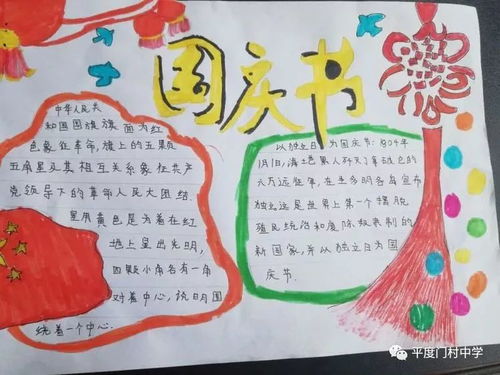 国庆节
中华人民共
和国国旗旗面为红
色象征革命,旗上的五颗
五角星及其相互关系象征共产
党领导下的革命人民大团结.
星用黄色是为着在红
地上显出光明,
四颗小角各有一角
对着中心,说明围
绕着一个中心.
以独立日为国庆节:
1月1日,海地黑人
六万远征军,在
独立这是世界上第一个摆脱
殖民统治和废除奴隶制的
新国家,并以独立日为国
庆节.
平度门村中学